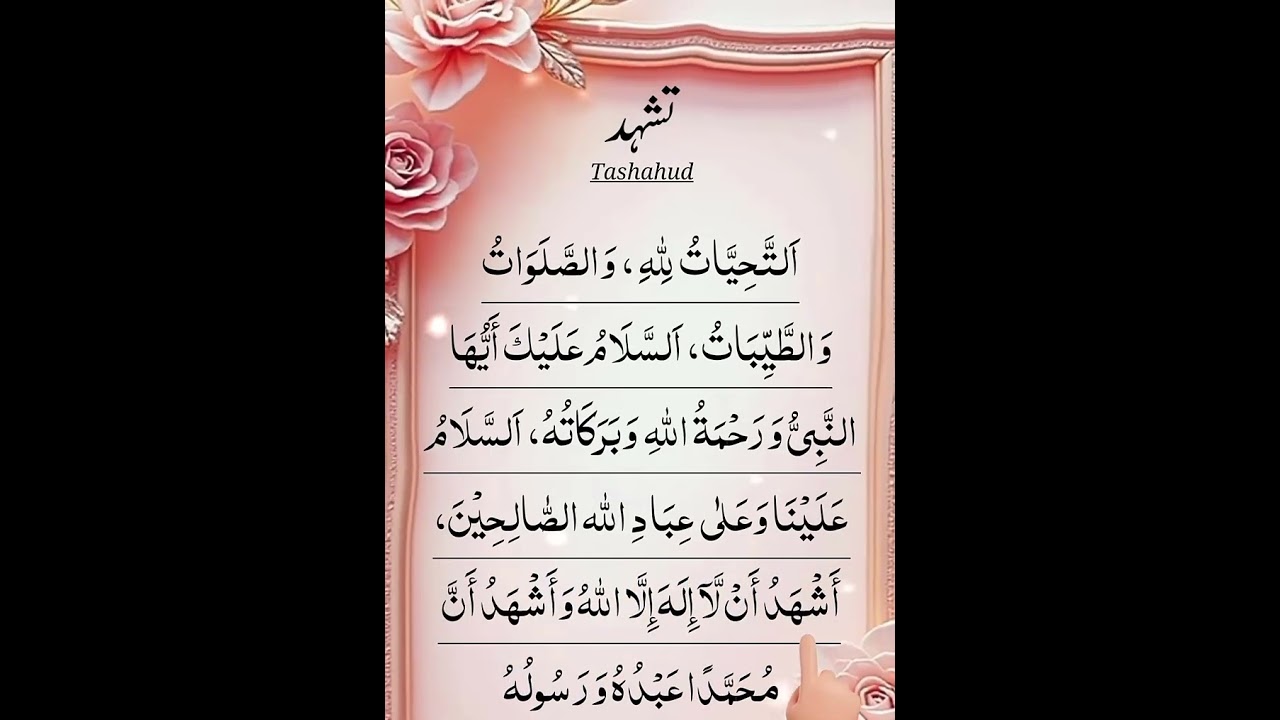 تشہد
Tashahud
اَلتَّحِيَّاتُ لِلّٰهِ ، وَالصَّلَوَاتُ
وَالطَّيِّبَاتُ، اَلسَّلَامُ عَلَيْكَ أَيُّهَا
النَّبِىُّ وَرَحْمَةُ اللهِ وَبَرَكَاتُهُ، اَلسَّلَامُ
عَلَيْنَا وَعَلٰى عِبَادِ الله الصّٰالِحِيْنَ،
أَشْهَدُ أَنْ لَّآ إِلَهَ إِلَّا اللهُ وَأَشْهَدُ أَنَّ
مُحَمَّدًا عَبْدُهُ وَرَسُولُهُ